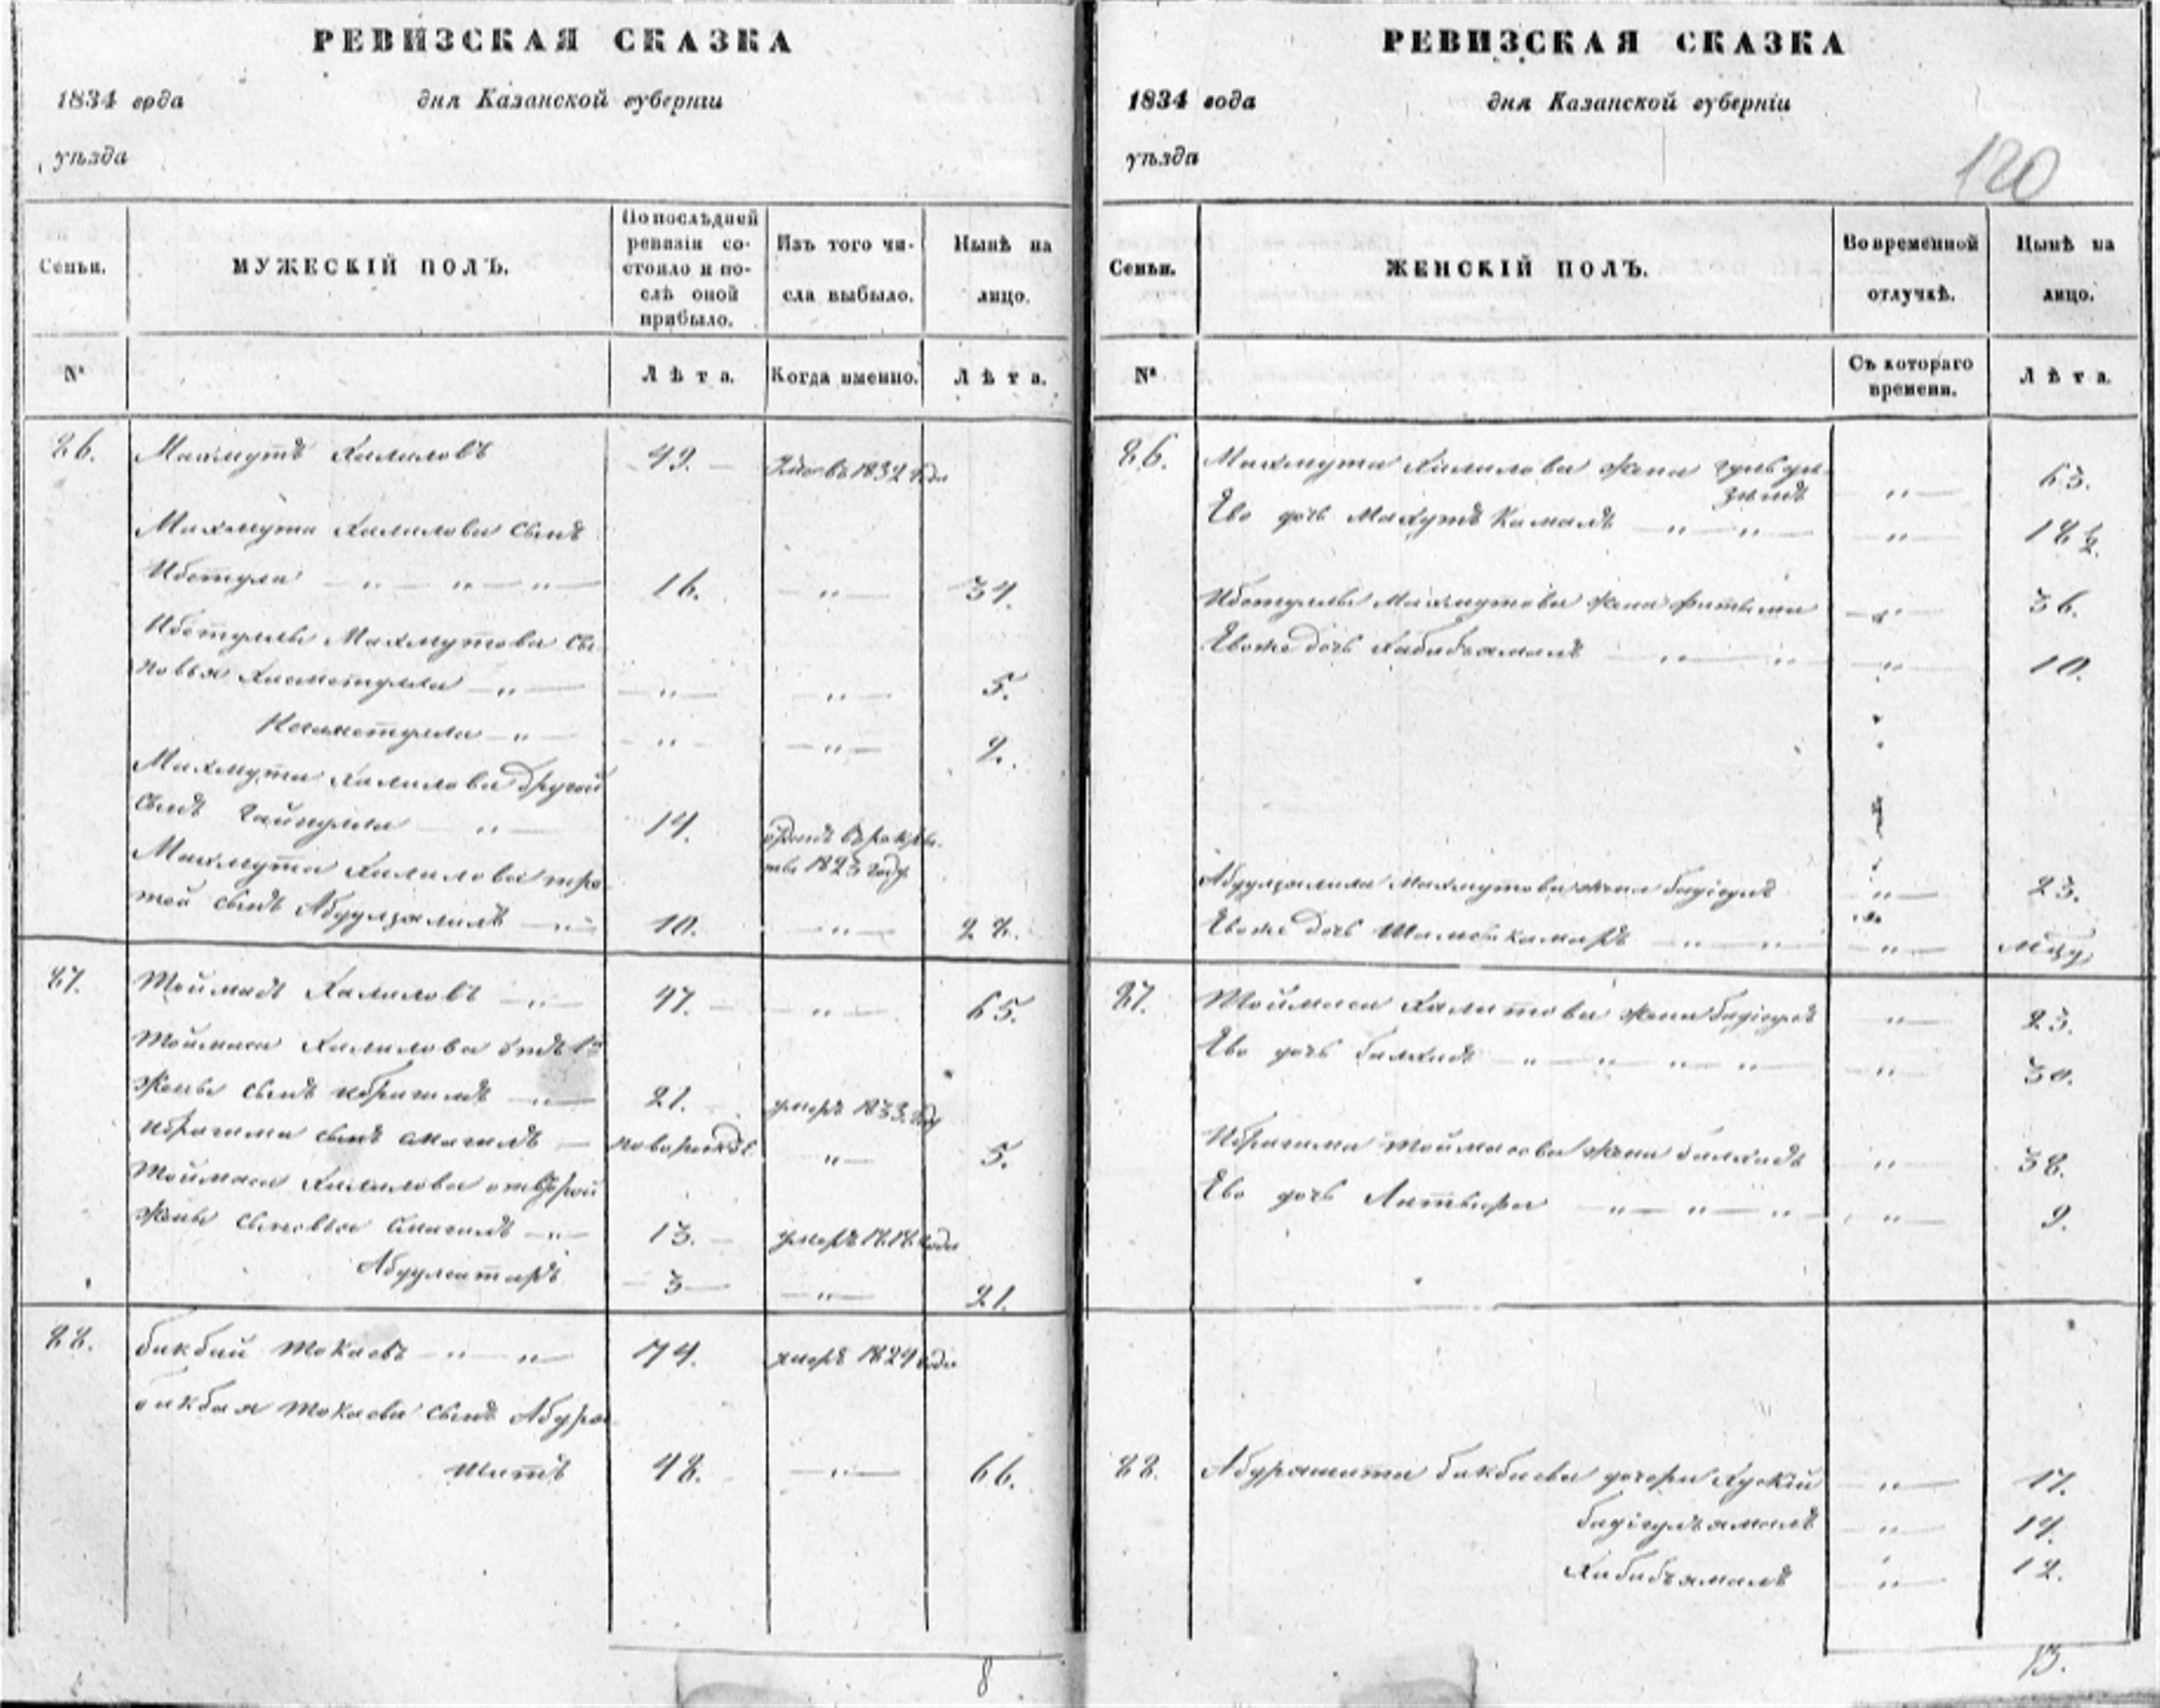 РЕВИЗСКАЯ СКАЗКА
1834 года дня Казанской губерніи
уѣзда
Семьи.
МУЖЕСКІЙ ПОЛЪ.
По послѣдней
ревизіи со-
стояло и по-
слѣ оной
прибыло.
Изъ того чи-
сла выбыло.
Нынѣ на
лицо.
№
Лѣта.
Когда именно.
Лѣта.
26. Махмутъ Халиловъ 49. 1832 года
Махмута Халилова сынъ
Ибетулла " " " 16. " 34.
Ибетуллы Махмутова сы-
новья Хисметулла " " " 5.
Негаметулла " " " 2.
Махмута Халилова другой
сынъ Гайнулла " 14.
1823 году
Махмута Халилова тре-
тей сынъ Абдулзялилъ " 10. " 27.
27. Тоймасъ Халиловъ " 47. " 65.
Тоймаса Халилова отъ 1й
жены сынъ Ибрагимъ " 21. умеръ 1833 году
Ибрагима сынъ Смагилъ новорожд. " 5.
Тоймаса Халилова от второй
жены сыновья Смагилъ " 13. умеръ 1818 года
Абдулсатаръ 3 " 21.
28. Бикбай Токаевъ " " 74. умеръ 1824 года
Бикбая Токаева сынъ Абдра-
шитъ 48. " 66.
8
РЕВИЗСКАЯ СКАЗКА
1834 года дня Казанской губерніи
уѣзда
120
Семьи.
ЖЕНСКІЙ ПОЛЪ.
Во временной
отлучкѣ.
Нынѣ на
лицо.
№
Съ котораго
времени.
Лѣта.
26. Махмута Халилова жена " 63.
Ево дочь Махутъ Камалъ " " " 18 ½.
Ибетуллы Махмутова жена Фатыма " 36.
Евоже дочь Хабибзямалъ " " " 10.
Абдулзялила Махмутова жена Бадігулъ " 23.
Евоже дочь Шамсикамаръ " " "
27. Тоймаса Халитова жена Бадігулъ " 23.
Ево дочь Балхизъ " " " " " 30.
Ибрагима Тоймасова жена Балхизъ " 38.
Ево дочь " " " " 9.
28. Абдрашита Бикбаева дочери " 17.
Бадігулзямалъ " 14.
Хабибзямалъ " 12.
13.